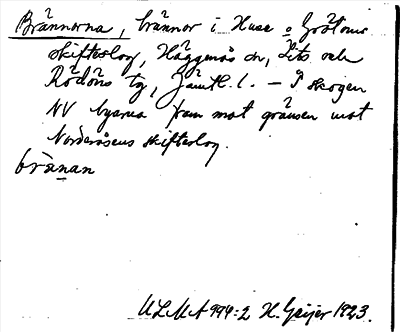 Brännorna, brännor i Huse o Gråtoms
skifteslag, Häggenås sn, Lits och
Rödöns tg, Jämtl. l. – På skogen
NV byarna fram mot gränsen mot
Norderåsens skifteslag.
brànan
ULMA 994:2 H. Geijer 1923.